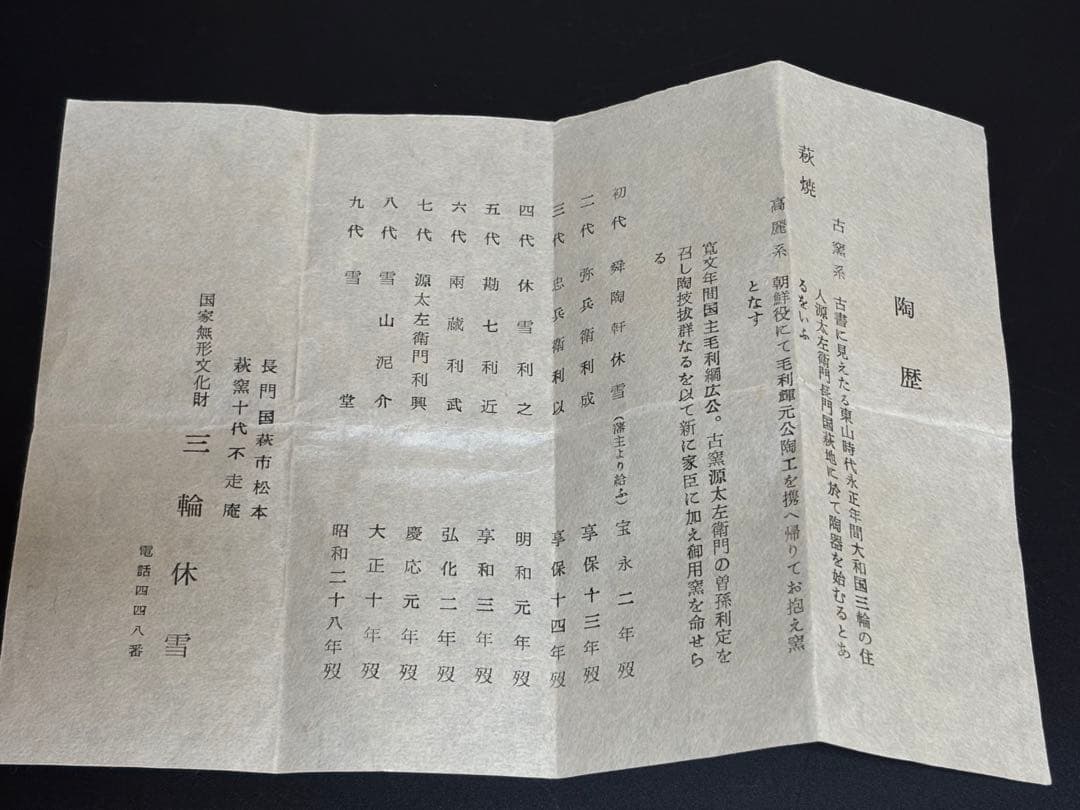 陶歴
萩焼
古窯系 古書に見えたる東山時代永正年間大和国三輪の住
人源太左衛門長門国萩地に於て陶器を始むるとあ
るをいふ
高麗系 朝鮮役にて毛利輝元公陶工を携へ帰りてお抱え窯
となす
寛文年間国主毛利綱広公。古窯源太左衛門の曽孫利定を
召し陶技抜群なるを以て新に家臣に加え御用窯を命せら
る
初代 舜陶軒休雪(藩主より給ふ) 宝永二年歿
二代 弥兵衛利成 享保十三年歿
三代 忠兵衛利以 享保十四年歿
四代 休雪利之 明和元年歿
五代 勘七利近 享和三年歿
六代 雨蔵利武 弘化二年歿
七代 源太左衛門利興 慶応元年歿
八代 雪山泥介 大正十年歿
九代 雪堂 昭和二十八年歿
長門国萩市松本
萩窯十代不走庵
国家無形文化財 三輪休雪
電話四四八番